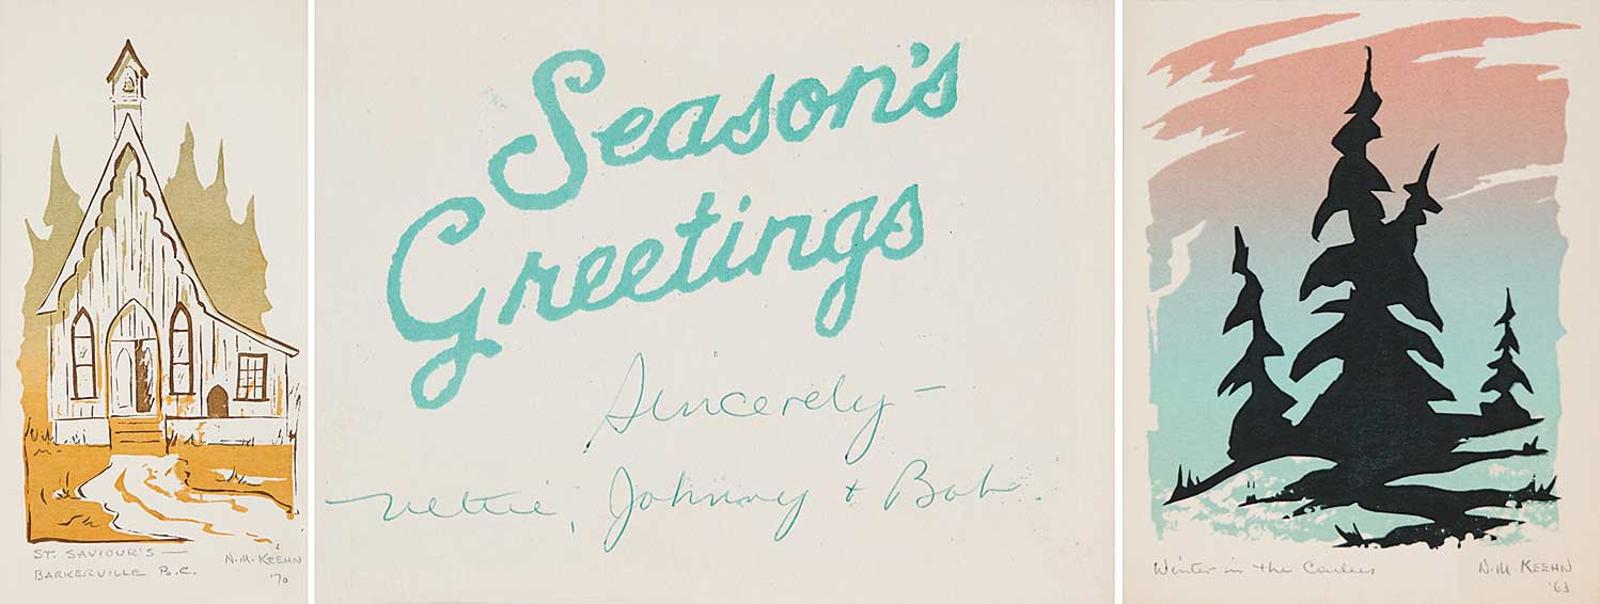 ST. SAVIOUR'S —
BARKERVILLE B.C.
N.M. KEEHN
'70
Season's
Greetings
Sincerely —
Nettie, Johnny + Bob.
Winter in the
N.M. KEEHN
'63